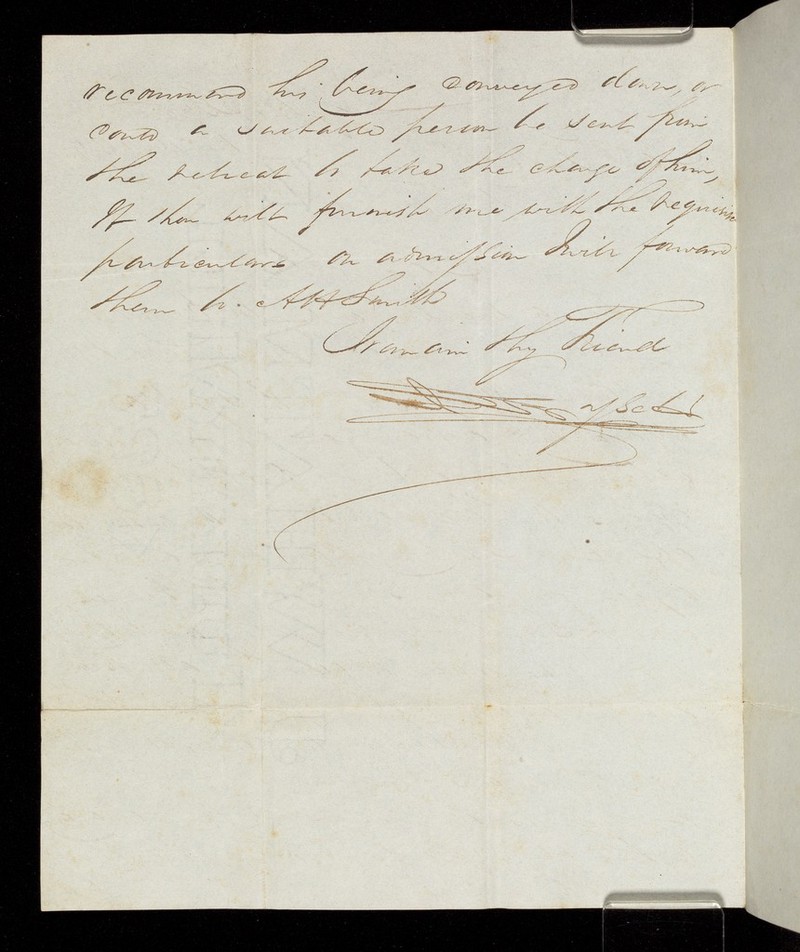 recommend his being conveyed down, or
could a suitable person be sent from
the retreat to take the charge of him,
If thou will furnish me with the requisite
particulars on admission I will forward
them to A H Smith
I remain thy Friend